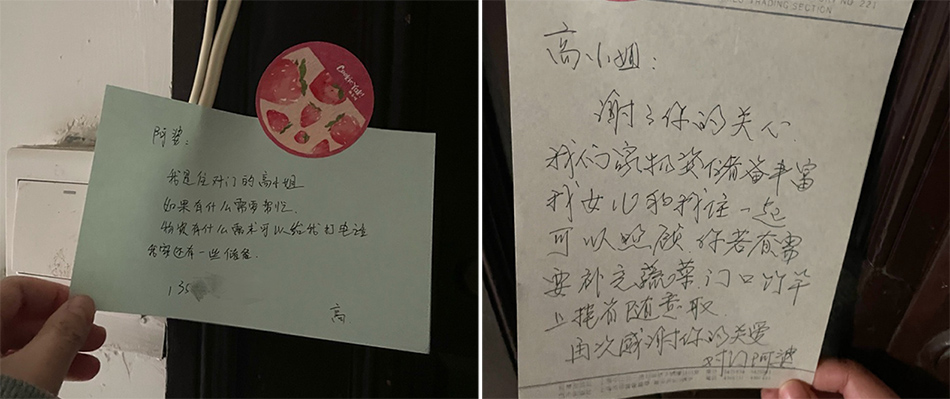 阿婆：
我是住对门的高小姐
如果有什么需要帮忙.
物资有什么需求可以给我打电话
我家还有一些储备.
135
高
TRADING SECTION
高小姐：
谢谢你的关心
我们家物资储备丰富
我女儿和我住一起
可以照顾 你若有需
要补充蔬菜门口竹竿
上挂着随意取
再次感谢你的关爱
对门阿婆